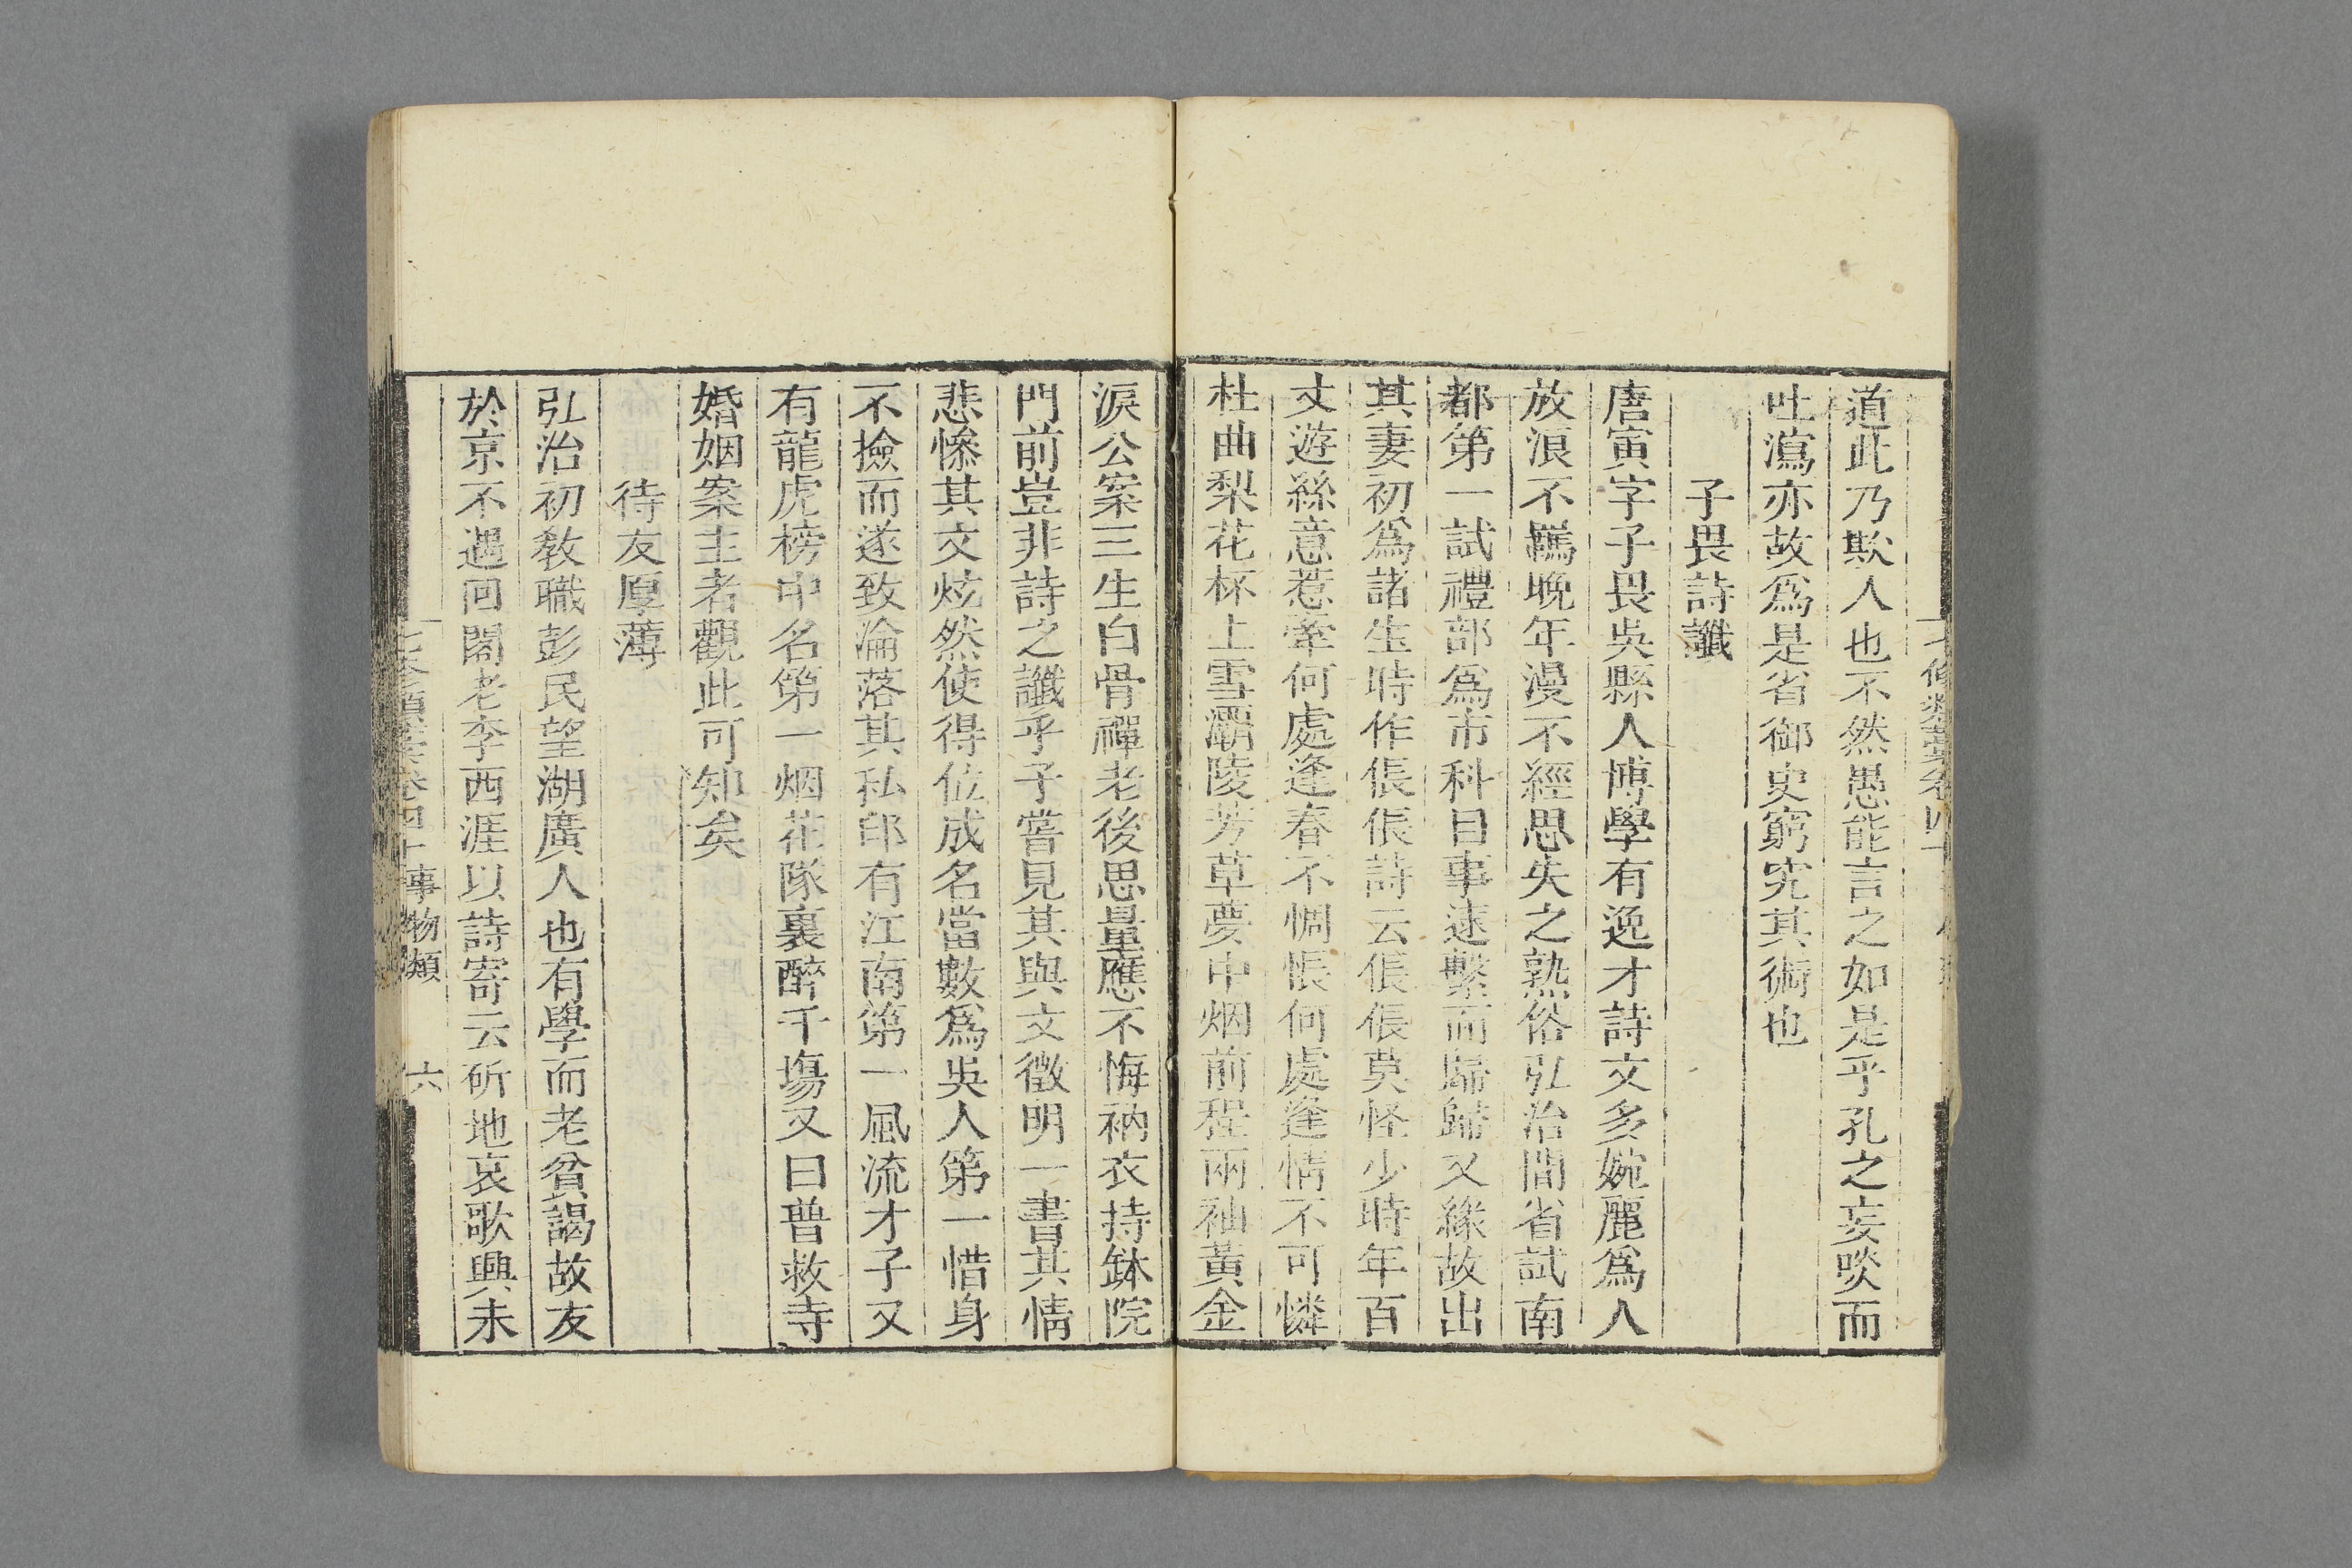 道此乃欺人也不然愚能言之如是乎孔之妄啖而
吐瀉亦故爲是省御史窮究其術也
子畏詩讖
唐寅字子畏吳縣人博學有逸才詩文多婉麗爲人
放浪不羈晚年漫不經思失之熟俗弘治間省試南
都第一試禮部爲市科目事逮繫而歸歸又緣故出
其妻初爲諸生時作倀倀詩云倀倀莫怪少時年百
丈遊絲意惹牽何處逢春不惆悵何處逢情不可憐
杜曲梨花杯上雪灞陵芳草夢中烟前程兩袖黃金
淚公案三生白骨禪老後思量應不悔衲衣持鉢院
門前豈非詩之讖乎子嘗見其與文徵明一書其情
悲慘其文炫然使得位成名當數爲吳人第一惜身
不撿而遂致淪落其私印有江南第一風流才子又
有龍虎榜中名第一烟花隊裏醉千塲又曰普救寺
婚姻案主者觀此可知矣
待友厚薄
弘治初敎職彭民望湖廣人也有學而老貧謁故友
於京不遇回閣老李西涯以詩寄云斫地哀歌興未
事物類
六